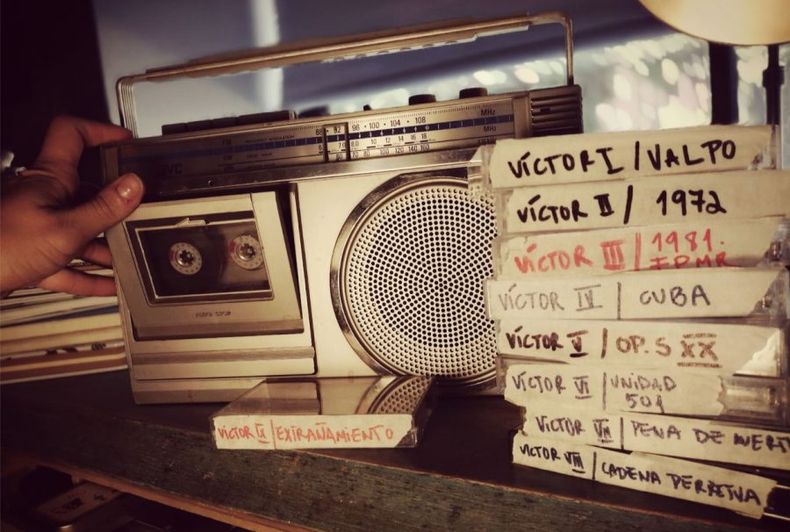 JVC
FM 88 92 96 ·100 ·104 · 108 MHz
MHz
VÍCTOR I / VALPO
VÍCTOR II / 1972
VÍCTOR III / 1981.
FPMR
VÍCTOR IV / CUBA
VÍCTOR V / OP. S XX
VÍCTOR VI / UNIDAD
501
VÍCTOR VII / PENA DE MUERT
VÍCTOR VIII / CADENA PERPETUA
VÍCTOR IX / EXTRAÑAMIENTO